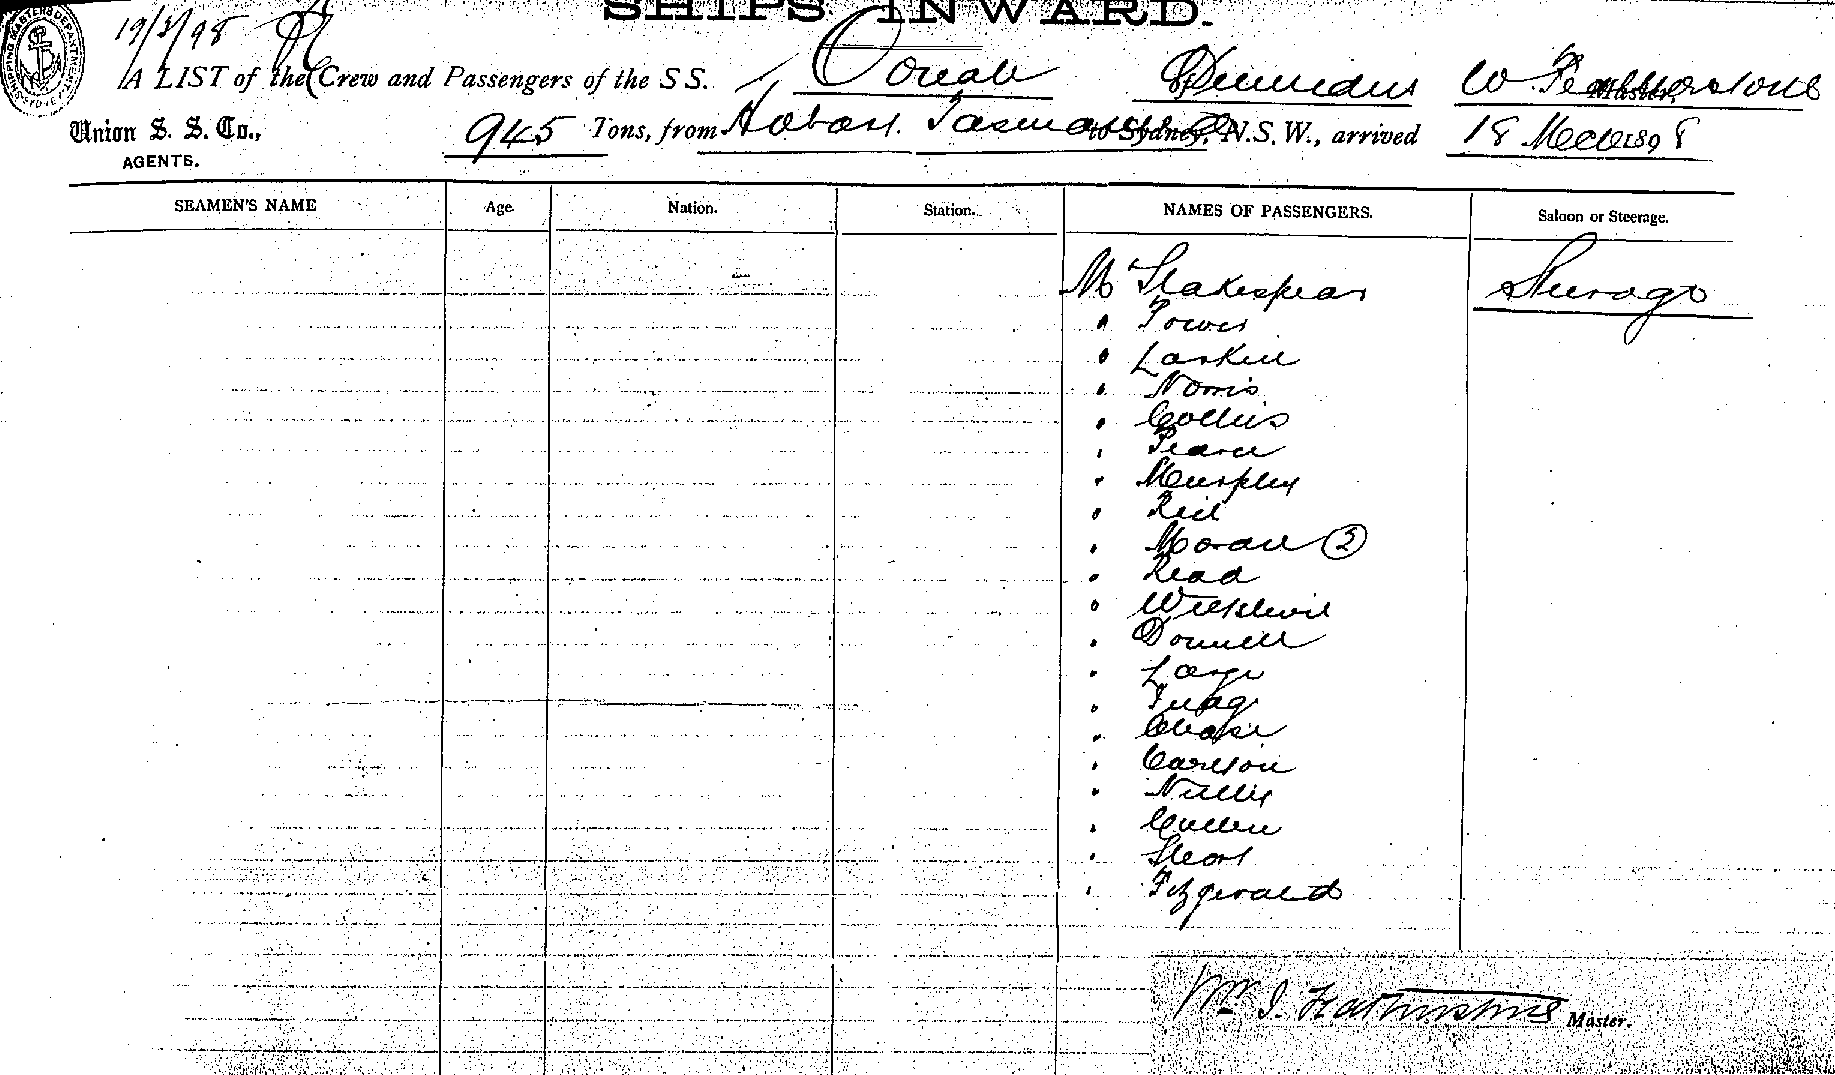 SHIPS INWARD.
19/3/98
A LIST of the Crew and Passengers of the S S. Oonah Dunedin W Featherstone Master,
Union S. S. Co.,
AGENTS.
945 Tons, from Hobart Tasmania to Sydney, N.S.W., arrived 18 March 1898
SEAMEN'S NAME Age. Nation. Station. NAMES OF PASSENGERS. Saloon or Steerage.
Mr Shakespear Steerage
" Power
" Larkin
" Norris
" Collins
" Pearce
" Murphy
" Reid
" Moran (2)
" Read
" Donnell
" Large
" Chase
" Carlson
" Cullen
" Short
" Fitzgerald
Wm I. Featherstone Master.